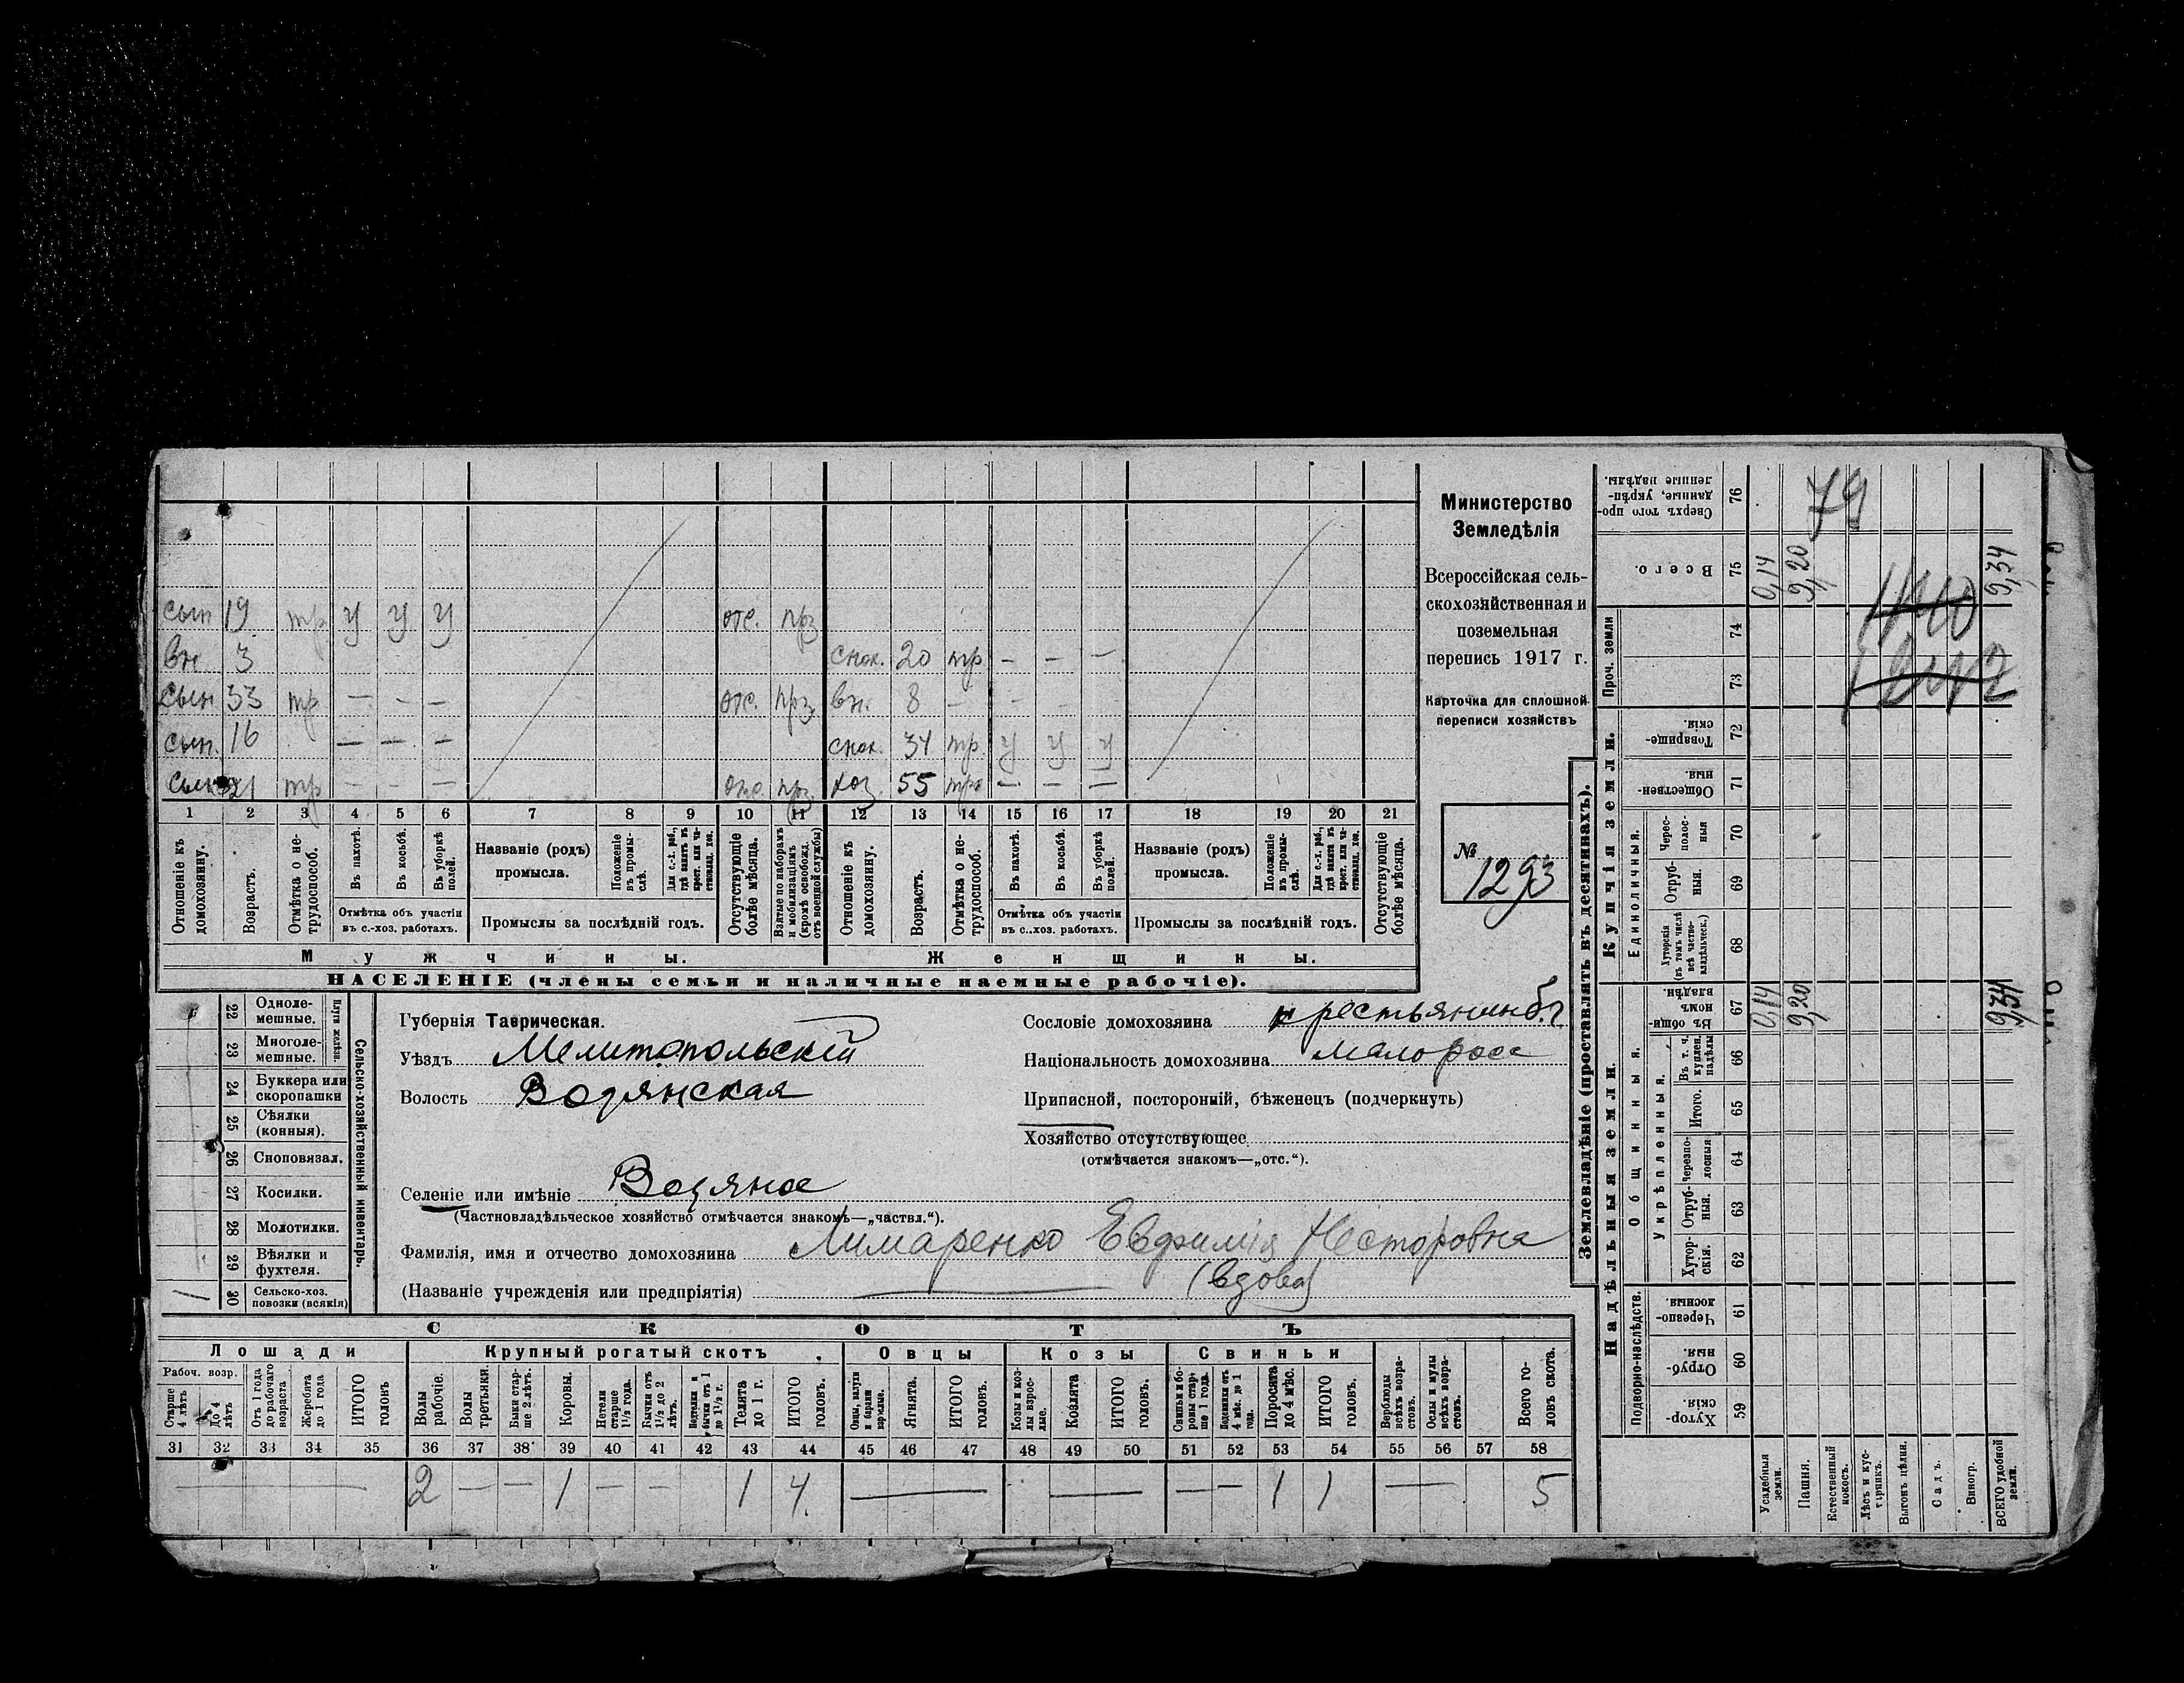 Министерство
Земледѣлія
Всероссійская сель-
скохозяйственная и
поземельная
перепись 1917 г.
Карточка для сплошной
переписи хозяйствъ
№ 1293
сын 19 тр у у у отс. прз
вн 3 снох. 20 тр - - -
сын 33 тр - - - отс. прз. вн. 8 - - -
сын. 16 - - - снох. 34 тр. у у у
сын 21 тр - - - отс. прз. хоз. 55 - - -
1 2 3 4 5 6 7 8 9 10 11 12 13 14 15 16 17 18 19 20 21
Отношеніе къ домохозяину.
Возрастъ.
Отмѣтка о не-трудоспособ.
Въ пахотѣ.
Въ косьбѣ.
Въ уборкѣ полей.
Отмѣтка объ участіи
въ с.-хоз. работахъ.
Названіе (родъ)
промысла.
Положеніе въ промы-слѣ.
Промыслы за послѣдній годъ.
Отсутствующіе болѣе мѣсяца.
Взятые по наборамъ и мобилизаціямъ (кромѣ освобожд. отъ военной службы)
Отношеніе къ домохозяину.
Возрастъ.
Отмѣтка о не-трудоспособ.
Въ пахотѣ.
Въ косьбѣ.
Въ уборкѣ полей.
Отмѣтка объ участіи
въ с..хоз. работахъ.
Названіе (родъ)
промысла.
Положеніе въ промы-слѣ.
Промыслы за послѣдній годъ.
Отсутствующіе болѣе мѣсяца.
Мужчины. Женщины.
НАСЕЛЕНІЕ (члены семьи и наличные наемные рабочіе).
Сельско-хозяйственный инвентарь.
22 Одноле-мешные.
23 Многоле-мешные.
24 Буккера или скоропашки
25 Сѣялки (конныя).
26 Сноповязал.
27 Косилки.
28 Молотилки.
29 Вѣялки и фухтеля.
30 Сельско-хоз. повозки (всякія) 1
Губернія Таврическая.
Уѣздъ Мелитопольскій
Волость Водянская
Селеніе или имѣніе Водяное
(Частновладѣльческое хозяйство отмѣчается знакомъ—„частвл.“).
Фамилія, имя и отчество домохозяина Лимаренко Евфимія Несторовна
(вдова)
(Названіе учрежденія или предпріятія)
Сословіе домохозяина крестьянинъ
Національность домохозяина Малоросс
Приписной, посторонній, бѣженецъ (подчеркнуть)
Хозяйство отсутствующее
(отмѣчается знакомъ—„отс.“).
СКОТЪ
Лошади Крупный рогатый скотъ. Овцы Козы Свиньи
Рабоч. возр.
Старше 4 лѣтъ
До 4 лѣтъ
Отъ 1 года до рабочаго возраста
Жеребята до 1 года
ИТОГО головъ
Волы рабочіе.
Волы третьяки.
Быки стар-ше 2 лѣтъ.
Коровы.
Нетели старше 1½ года.
Бычки отъ 1½ до 2 лѣтъ.
Телята до 1 г.
ИТОГО головъ.
Ягнята.
ИТОГО головъ.
Козы и коз-лы взрос-лые.
Козлята
ИТОГО головъ.
Поросята до 4 мѣс.
ИТОГО головъ.
Верблюды всѣхъ возра-стовъ.
Ослы и мулы всѣхъ возра-стовъ.
Всего го-ловъ скота.
31 32 33 34 35 36 37 38 39 40 41 42 43 44 45 46 47 48 49 50 51 52 53 54 55 56 57 58
2 - - 1 - - 1 4. - - - - 1 1 - 5
Землевладѣніе (проставлять въ десятинахъ).
Надѣльныя земли. Купчія земли.
Подворно-наслѣдств.
Общинныя.
Укрѣпленныя.
Единоличныя.
Проч. земли
59 Хутор-скія.
60 Отруб-ныя.
61 Черезпо-лосныя.
62 Хутор-скія.
63 Отруб-ныя.
64 Черезпо-лосныя
65 Итого.
66 Въ т. ч. куплен. надѣлы
67 Въ общин-номъ владѣн.
68 Хуторскія (въ томъ числѣ всѣ частно-владѣльческ.)
69 Отруб-ныя.
70 Черес-полос-ныя
71 Обществен-ныя.
72 Товарище-скія.
73
74
75 Всего.
76 Сверхъ того про-данные, укрѣп-ленные надѣлы.
Усадебныя земли. 0,14 0,14
Пашня. 9,20 9,20
Естественный покосъ.
Лѣсъ и кус-тарникъ.
Выгонъ цѣлин.
Садъ.
Виногр.
ВСЕГО удобной земли. 9,34 9,34
79